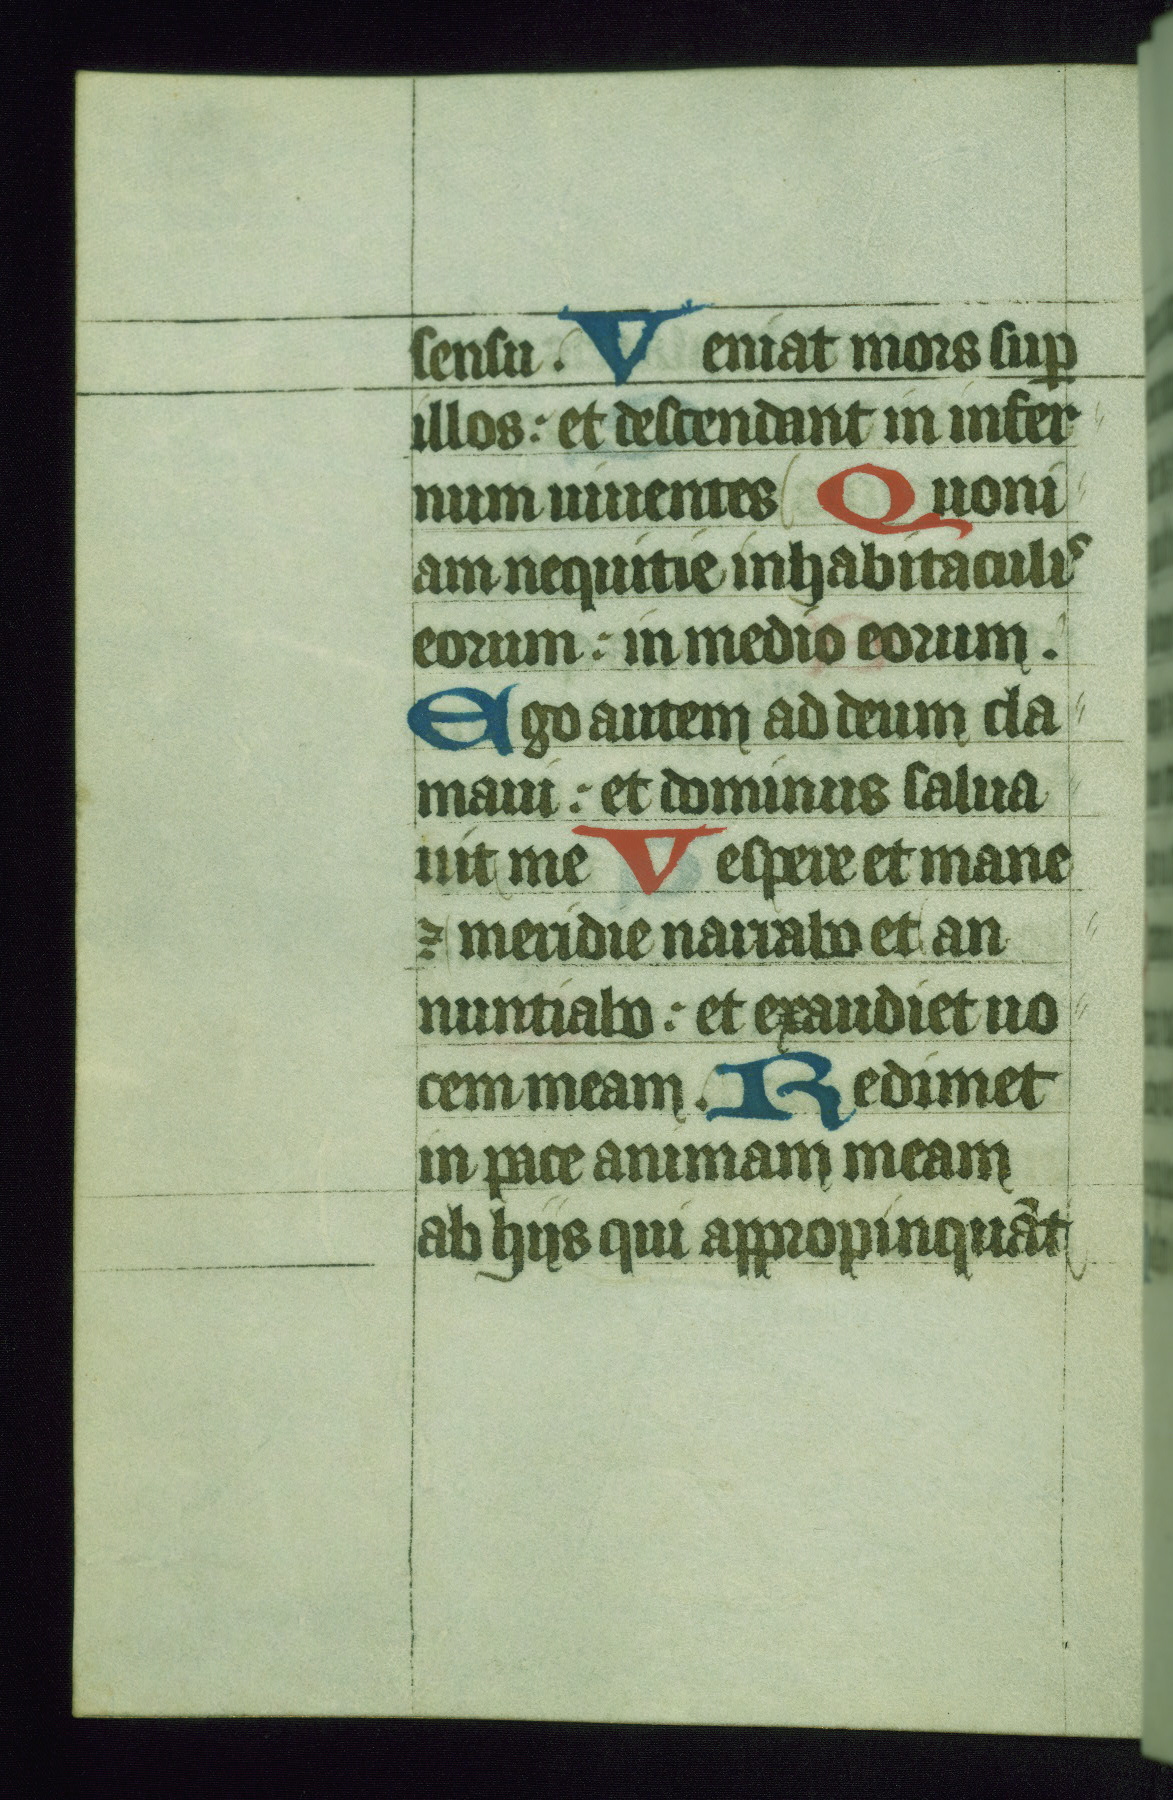 sensu. Veniat mors sup̱
illos: et descendant in infer
num uiuentes Quoni
am nequitie in habitaculis
eorum: in medio eorum.
Ego autem ad deum cla
maui: et dominus salua
uit me Vespere et mane
⁊ meridie narrabo et an
nuntiabo: et exaudiet uo
cem meam. Redimet
in pace animam meam
ab hijs qui appropinquāt